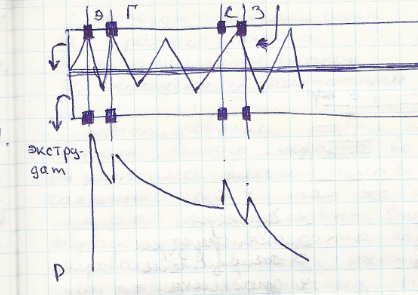 Э Г С З
экстру-
дат
P